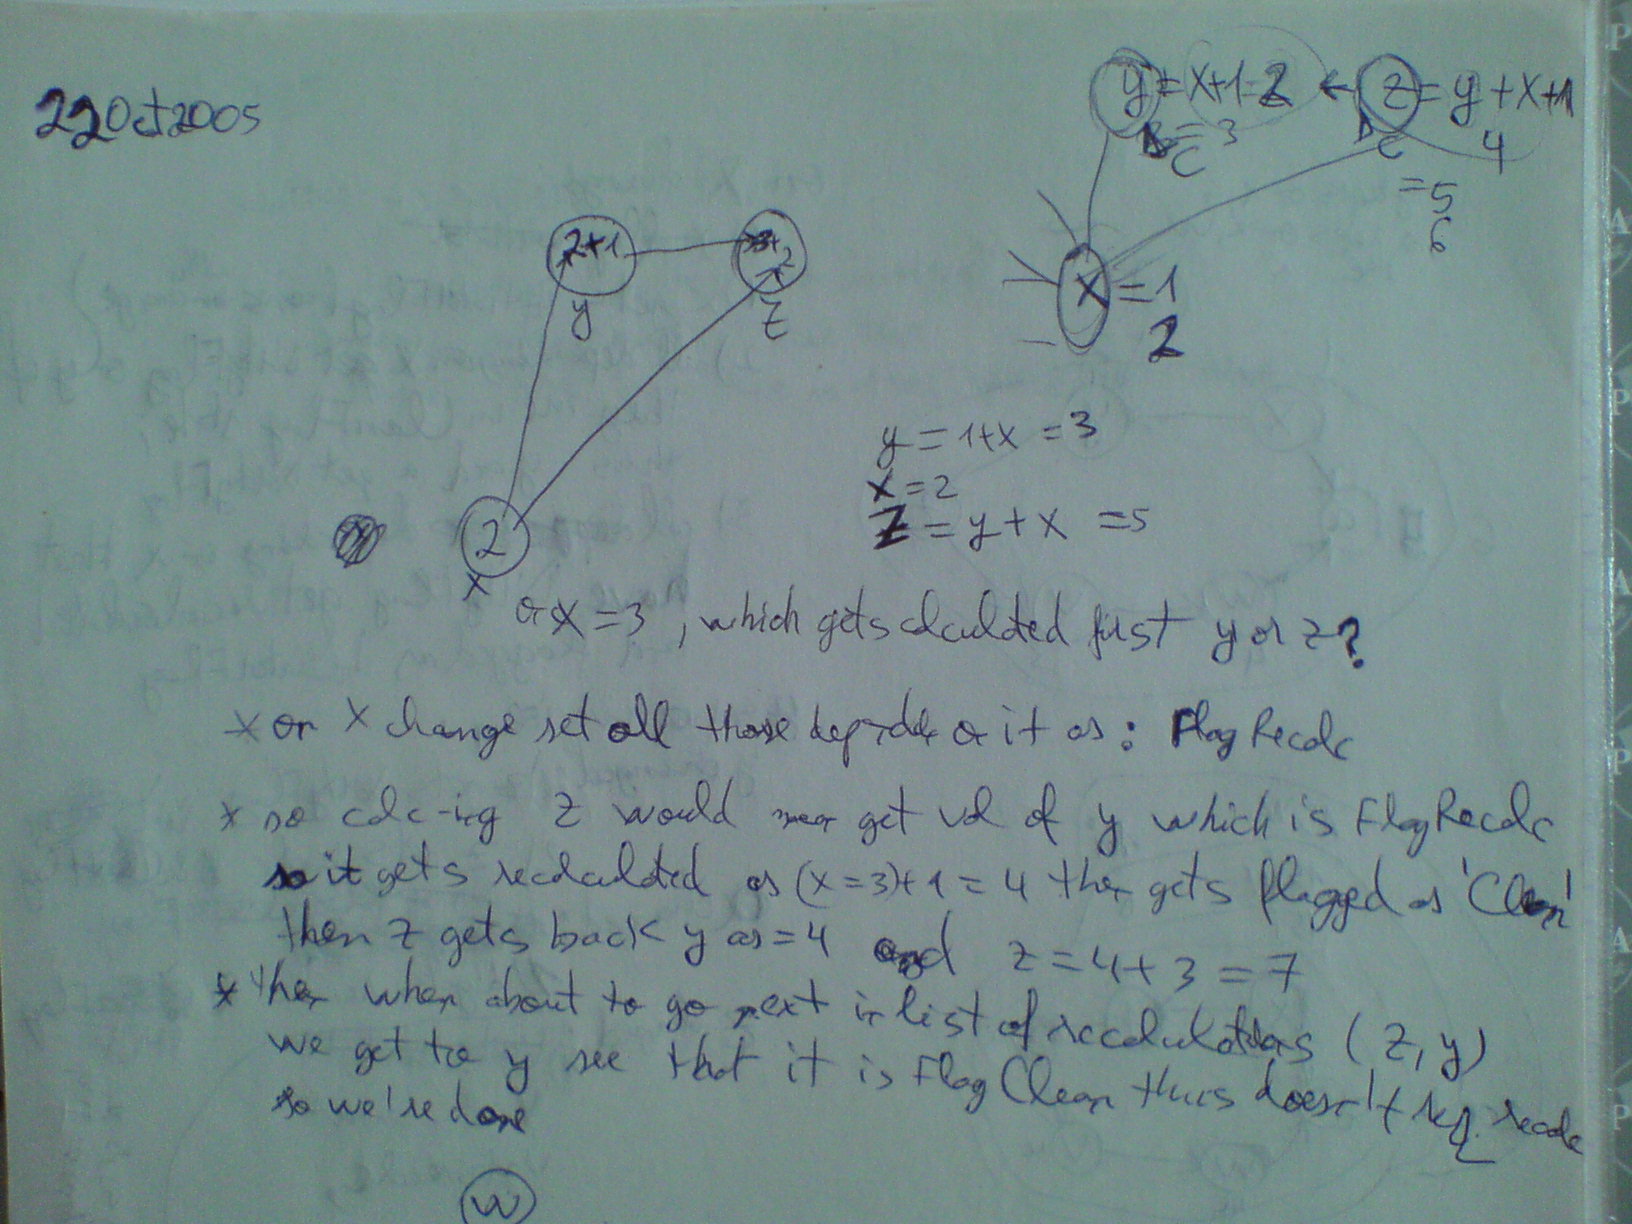 22Oct2005
y = x+1 = 2 ← z = y+x+1
= 3
C
C
4
= 5
6
2+1
y
z
x = 1
2
y = 1+x = 3
x = 2
z = y + x = 5
2
x
on x = 3, which gets calculated first y or z?
* on x change set all those dependent on it as: FlagRecalc
* so calc-ing z would get val of y which is FlagRecalc
so it gets recalculated as (x=3)+1=4 then gets flagged as 'Clean'
then z gets back y as = 4 and z = 4+3 = 7
* then when about to go next in list of recalculations (z, y)
we get to y see that it is FlagClean thus doesn't req. recalc
so we're done
W
P
A
P
A
P
A
P